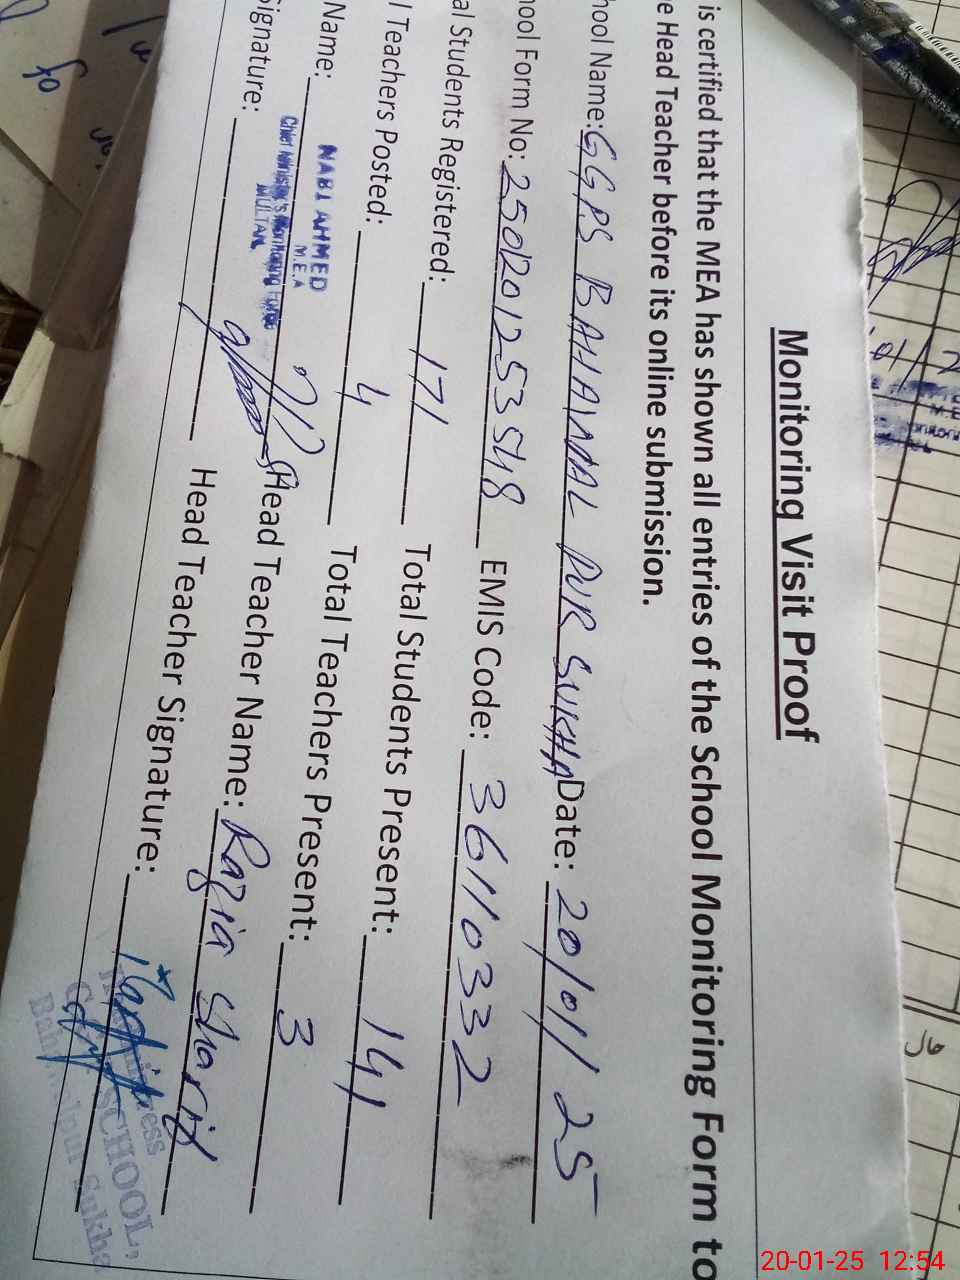 Monitoring Visit Proof
is certified that the MEA has shown all entries of the School Monitoring Form to
e Head Teacher before its online submission.
hool Name: GGPS BAHAWAL PUR SUKHA Date: 20/01/25
ool Form No: 25012012 53548 EMIS Code: 36110332
al Students Registered: 171 Total Students Present: 141
l Teachers Posted: 4 Total Teachers Present: 3
Name: NABI AHMED Head Teacher Name: Razia Sharif
M.E.A
Chief Minister's Monitoring Force
MULTAN
ignature: Head Teacher Signature:
SCHOOL,
Sukha
20-01-25 12:54